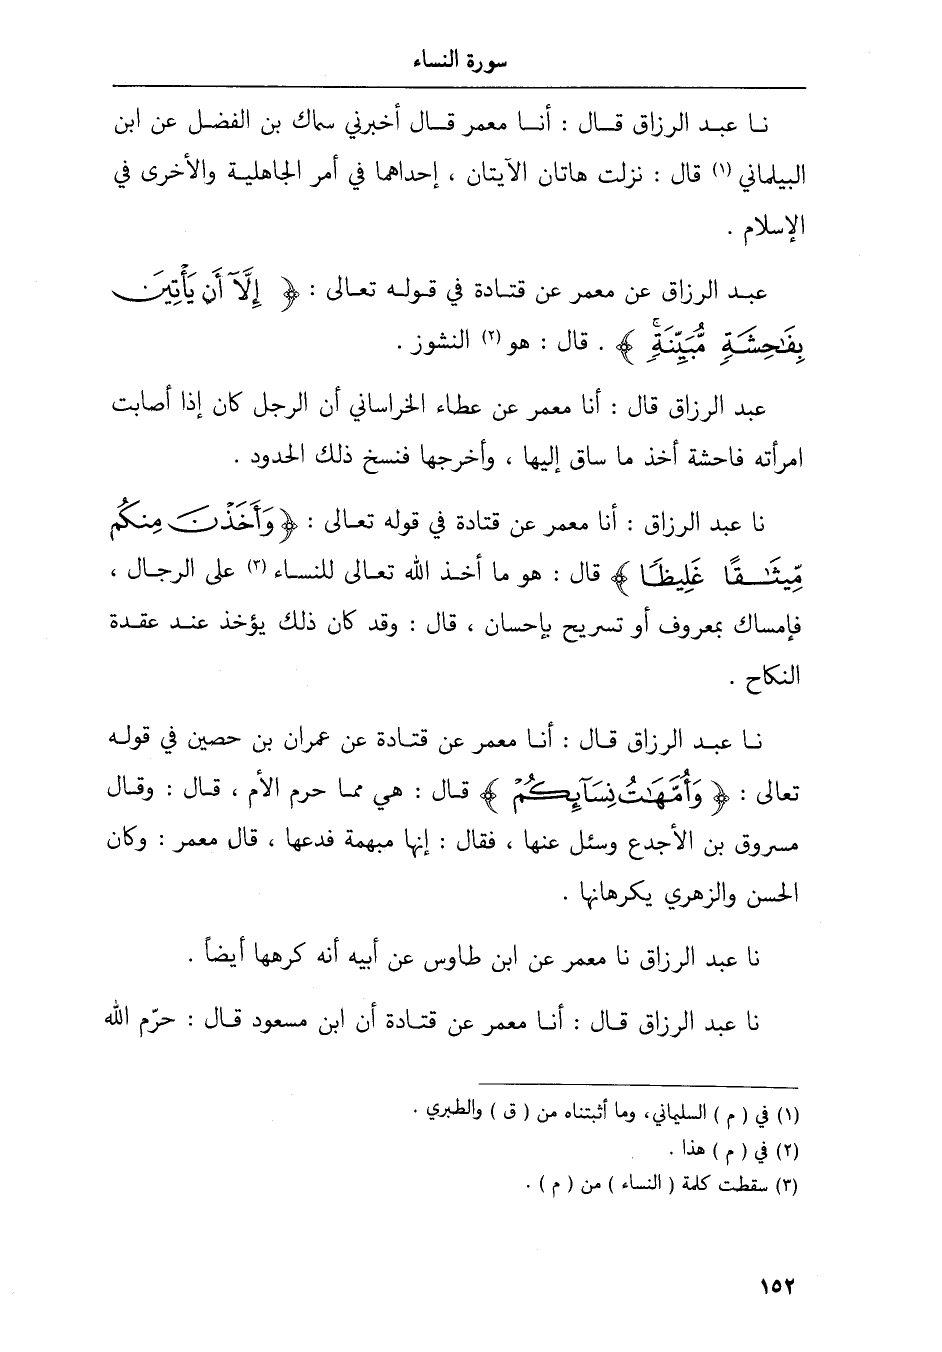 سورة النساء
نا عبد الرزاق قال : أنا معمر قال أخبرني سماك بن الفضل عن ابن
البيلماني (١) قال : نزلت هاتان الآيتان ، إحداهما في أمر الجاهلية والأخرى في
الإسلام .
عبد الرزاق عن معمر عن قتادة في قوله تعالى : ﴿ إِلَّآ أَن يَأْتِينَ
بِفَٰحِشَةٍ مُّبَيِّنَةٍۚ ﴾ . قال : هو (٢) النشوز .
عبد الرزاق قال : أنا معمر عن عطاء الخراساني أن الرجل كان إذا أصابت
امرأته فاحشة أخذ ما ساق إليها ، وأخرجها فنسخ ذلك الحدود .
نا عبد الرزاق : أنا معمر عن قتادة في قوله تعالى : ﴿ وَأَخَذْنَ مِنكُم
مِّيثَٰقًا غَلِيظًا ﴾ قال : هو ما أخذ الله تعالى للنساء (٣) على الرجال ،
فإمساك بمعروف أو تسريح بإحسان ، قال : وقد كان ذلك يؤخذ عند عقدة
النكاح .
نا عبد الرزاق قال : أنا معمر عن قتادة عن عمران بن حصين في قوله
تعالى : ﴿ وَأُمَّهَٰتُ نِسَآئِكُمْ ﴾ قال : هي مما حرم الأم ، قال : وقال
مسروق بن الأجدع وسئل عنها ، فقال : إنها مبهمة فدعها ، قال معمر : وكان
الحسن والزهري يكرهانها .
نا عبد الرزاق نا معمر عن ابن طاوس عن أبيه أنه كرهها أيضاً .
نا عبد الرزاق قال : أنا معمر عن قتادة أن ابن مسعود قال : حرّم الله
(١) في ( م ) السليماني، وما أثبتناه من ( ق ) والطبري .
(٢) في ( م ) هذا .
(٣) سقطت كلمة ( النساء ) من ( م ) .
١٥٢